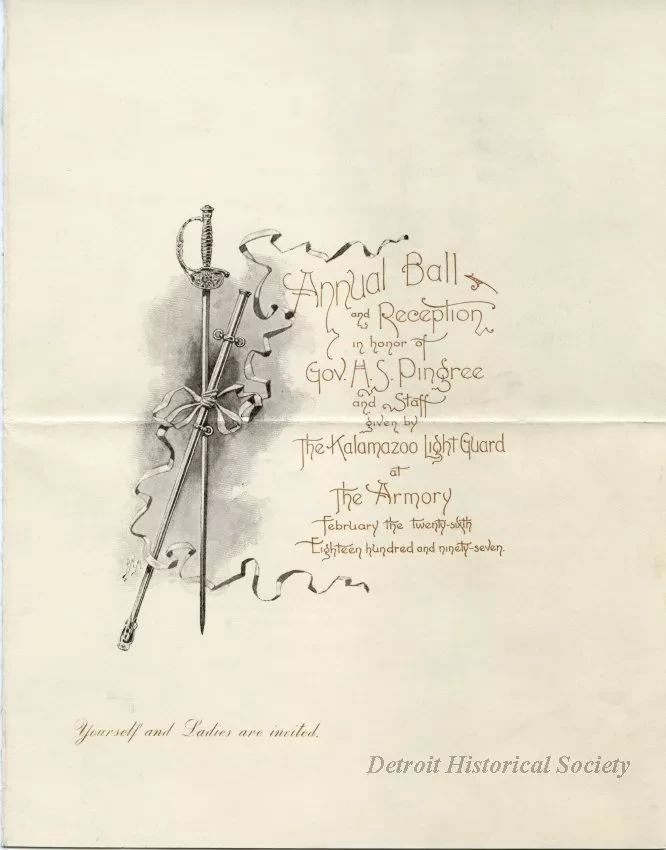 Annual Ball
and Reception
in honor of
Gov. H. S. Pingree
and Staff
given by
The Kalamazoo Light Guard
at
The Armory
February the twenty-sixth
Eighteen hundred and ninety-seven.
Yourself and Ladies are invited.
Detroit Historical Society